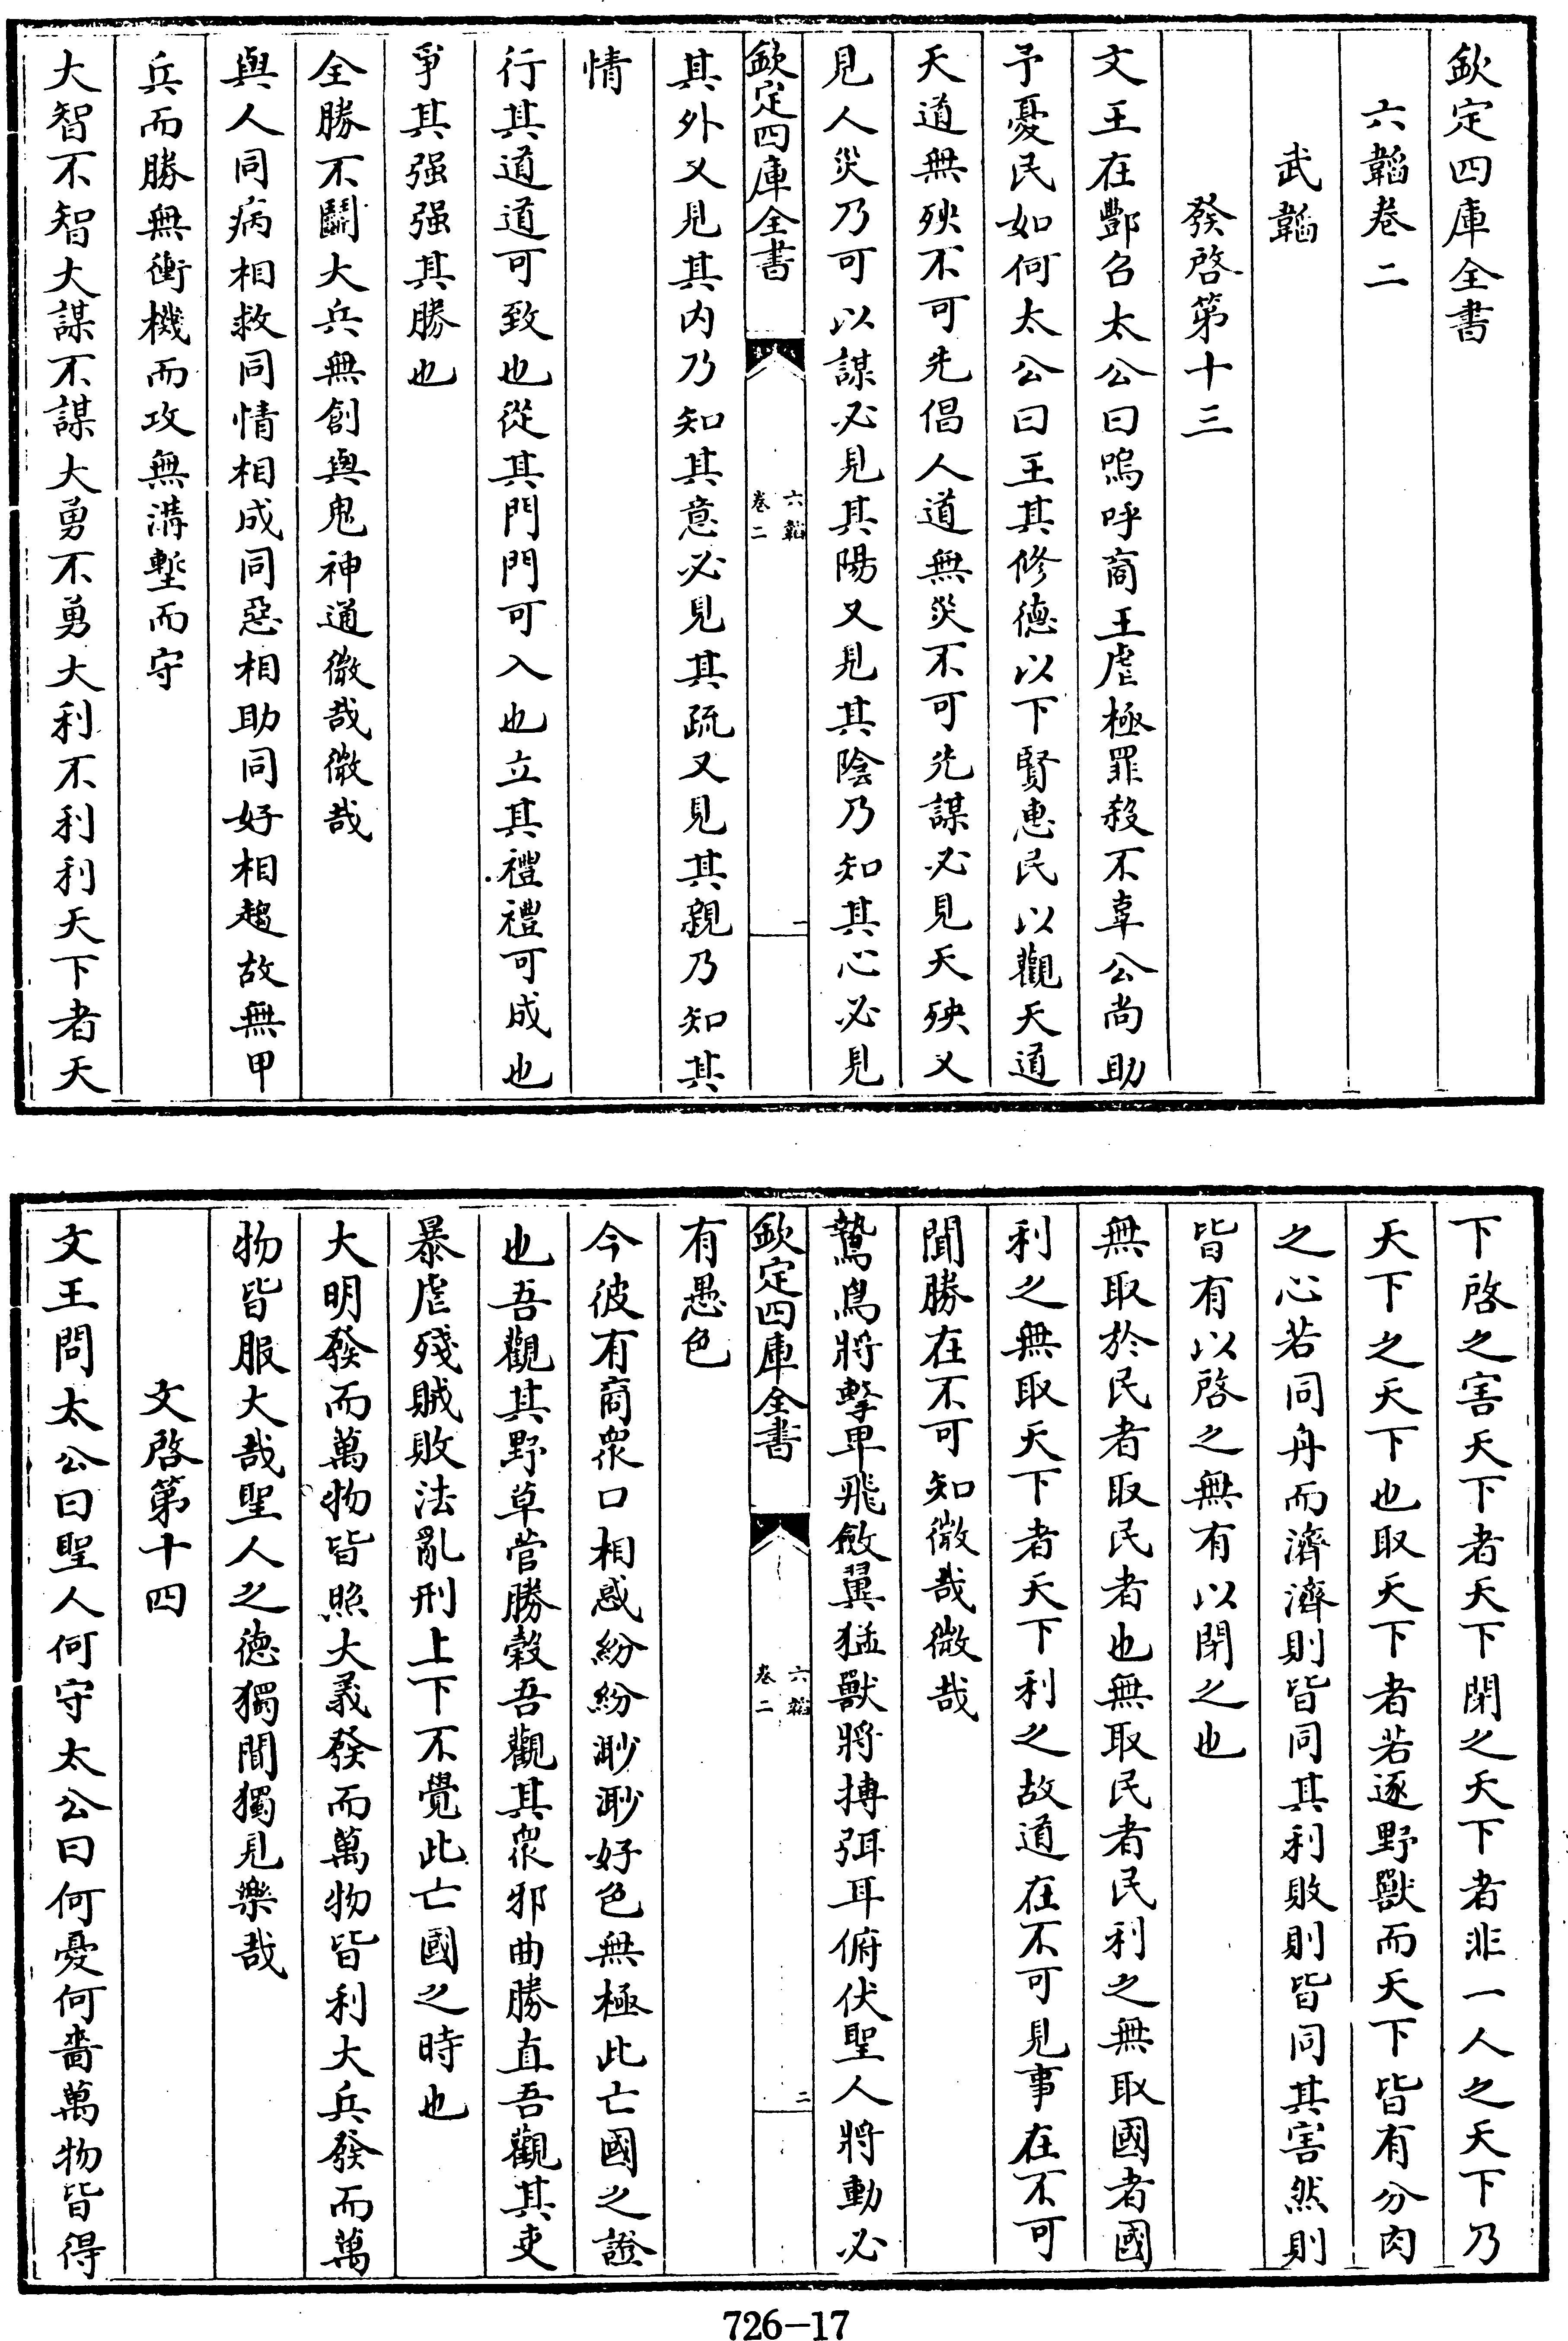 欽定四庫全書
六韜卷二
武韜
發啓第十三
文王在酆召太公曰嗚呼商王虐極罪殺不辜公尚助
予憂民如何太公曰王其修德以下賢惠民以觀天道
天道無殃不可先倡人道無災不可先謀必見天殃又
見人災乃可以謀必見其陽又見其陰乃知其心必見
欽定四庫全書
六韜
卷二
一
其外又見其内乃知其意必見其疏又見其親乃知其
情
行其道道可致也從其門門可入也立其禮禮可成也
爭其强强其勝也
全勝不鬭大兵無創與鬼神通微哉微哉
與人同病相救同情相成同惡相助同好相趨故無甲
兵而勝無衝機而攻無溝塹而守
大智不智大謀不謀大勇不勇大利不利利天下者天
下啓之害天下者天下閉之天下者非一人之天下乃
天下之天下也取天下者若逐野獸而天下皆有分肉
之心若同舟而濟濟則皆同其利敗則皆同其害然則
皆有以啓之無有以閉之也
無取於民者取民者也無取民者民利之無取國者國
利之無取天下者天下利之故道在不可見事在不可
聞勝在不可知微哉微哉
鷙鳥將擊卑飛斂翼猛獸將搏弭耳俯伏聖人將動必
欽定四庫全書
六韜
卷二
二
有愚色
今彼有商衆口相惑紛紛渺渺好色無極此亡國之證
也吾觀其野草菅勝穀吾觀其衆邪曲勝直吾觀其吏
暴虐殘賊敗法亂刑上下不覺此亡國之時也
大明發而萬物皆照大義發而萬物皆利大兵發而萬
物皆服大哉聖人之德獨聞獨見樂哉
文啓第十四
文王問太公曰聖人何守太公曰何憂何嗇萬物皆得
726-17